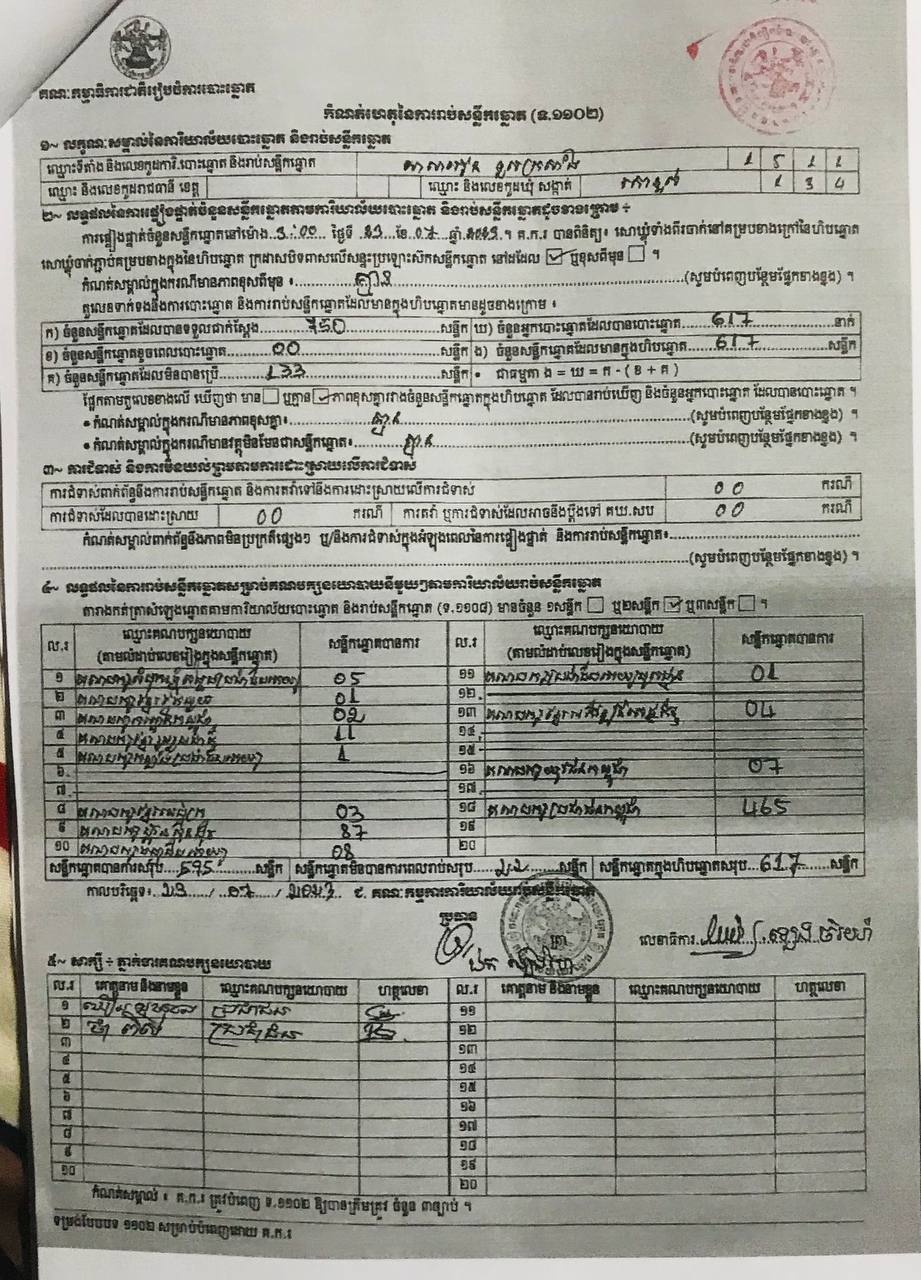 គណៈកម្មាធិការជាតិរៀបចំការបោះឆ្នោត
កំណត់ហេតុនៃការរាប់សន្លឹកឆ្នោត (ទ.១១០២)
១~ លក្ខណៈសម្គាល់នៃការិយាល័យបោះឆ្នោត និងរាប់សន្លឹកឆ្នោត
ឈ្មោះទីតាំង និងលេខកូដការិ.បោះឆ្នោត និងរាប់សន្លឹកឆ្នោត 1 5 1 1
ឈ្មោះ និងលេខកូដរាជធានី ខេត្ត ឈ្មោះ និងលេខកូដឃុំ សង្កាត់ 1 3 4
២~ លទ្ធផលនៃការផ្ទៀងផ្ទាត់ចំនួនសន្លឹកឆ្នោតតាមការិយាល័យបោះឆ្នោត និងរាប់សន្លឹកឆ្នោតដូចខាងក្រោម ÷
ការផ្ទៀងផ្ទាត់ចំនួនសន្លឹកឆ្នោតនៅម៉ោង 3:00 ថ្ងៃទី 23 ខែ 07 ឆ្នាំ 2023 ។ គ.ក.រ បានពិនិត្យ៖ សោឃ្លុំទាំងពីរចាក់នៅគម្របខាងក្រៅនៃហិបឆ្នោត
សោឃ្លុំចាក់ភ្ជាប់គម្របខាងក្នុងនៃហិបឆ្នោត ក្រដាសបិទពាសលើសន្ទះប្រឡោះសិកសន្លឹកឆ្នោត នៅដដែល ☑ ឬខុសពីមុន ☐ ។
កំណត់សម្គាល់ក្នុងករណីមានភាពខុសពីមុន ៖ គ្មាន (សូមបំពេញបន្ថែមផ្នែកខាងខ្នង) ។
តួលេខទាក់ទងនឹងការបោះឆ្នោត និងការរាប់សន្លឹកឆ្នោតដែលមានក្នុងហិបឆ្នោតមានដូចខាងក្រោម ៖
ក) ចំនួនសន្លឹកឆ្នោតដែលបានទទួលជាក់ស្តែង 750 សន្លឹក ឃ) ចំនួនអ្នកបោះឆ្នោតដែលបានបោះឆ្នោត 617 នាក់
ខ) ចំនួនសន្លឹកឆ្នោតខូចពេលបោះឆ្នោត 00 សន្លឹក ង) ចំនួនសន្លឹកឆ្នោតដែលមានក្នុងហិបឆ្នោត 617 សន្លឹក
គ) ចំនួនសន្លឹកឆ្នោតដែលមិនបានប្រើ 133 សន្លឹក • ជាធម្មតា ង = ឃ = ក - ( ខ + គ )
ផ្អែកតាមតួលេខខាងលើ ឃើញថា មាន ☐ ឬគ្មាន ☑ ភាពខុសគ្នារវាងចំនួនសន្លឹកឆ្នោតក្នុងហិបឆ្នោត ដែលបានរាប់ឃើញ និងចំនួនអ្នកបោះឆ្នោត ដែលបានបោះឆ្នោត ។
• កំណត់សម្គាល់ក្នុងករណីមានភាពខុសគ្នា៖ គ្មាន (សូមបំពេញបន្ថែមផ្នែកខាងខ្នង) ។
• កំណត់សម្គាល់ក្នុងករណីមានវត្ថុមិនមែនជាសន្លឹកឆ្នោត៖ គ្មាន (សូមបំពេញបន្ថែមផ្នែកខាងខ្នង) ។
៣~ ការជំទាស់ និងការមិនយល់ព្រមតាមការដោះស្រាយលើការជំទាស់
ការជំទាស់ពាក់ព័ន្ធនឹងការរាប់សន្លឹកឆ្នោត និងការតវ៉ាទៅនឹងការដោះស្រាយលើការជំទាស់ 00 ករណី
ការជំទាស់ដែលបានដោះស្រាយ 00 ករណី ការតវ៉ា ឬការជំទាស់ដែលអាចនឹងប្តឹងទៅ គឃ.សប 00 ករណី
កំណត់សម្គាល់ពាក់ព័ន្ធនឹងភាពមិនប្រក្រតីផ្សេងៗ ឬ/និងការជំទាស់ក្នុងអំឡុងពេលនៃការផ្ទៀងផ្ទាត់ និងការរាប់សន្លឹកឆ្នោត៖
(សូមបំពេញបន្ថែមផ្នែកខាងខ្នង) ។
៤~ លទ្ធផលនៃការរាប់សន្លឹកឆ្នោតសម្រាប់គណបក្សនយោបាយនីមួយៗតាមការិយាល័យរាប់សន្លឹកឆ្នោត
តារាងកត់ត្រាសំឡេងឆ្នោតតាមការិយាល័យបោះឆ្នោត និងរាប់សន្លឹកឆ្នោត (ទ.១១០៨) មានចំនួន ១សន្លឹក ☐ ឬ២សន្លឹក ☑ ឬ៣សន្លឹក ☐ ។
ល.រ ឈ្មោះគណបក្សនយោបាយ (តាមលំដាប់លេខរៀងក្នុងសន្លឹកឆ្នោត) សន្លឹកឆ្នោតបានការ ល.រ ឈ្មោះគណបក្សនយោបាយ (តាមលំដាប់លេខរៀងក្នុងសន្លឹកឆ្នោត) សន្លឹកឆ្នោតបានការ
១ 05 ១១ 01
២ 01 ១២
៣ 02 ១៣ 04
៤ 11 ១៤
៥ 1 ១៥
៦ ១៦ គណបក្សយុវជនកម្ពុជា 07
៧ ១៧
៨ 03 ១៨ គណបក្សប្រជាជនកម្ពុជា 465
៩ គណបក្សហ៊្វុនស៊ិនប៉ិច 87 ១៩
១០ 08 ២០
សន្លឹកឆ្នោតបានការសរុប 595 សន្លឹក សន្លឹកឆ្នោតមិនបានការពេលរាប់សរុប 22 សន្លឹក សន្លឹកឆ្នោតក្នុងហិបឆ្នោតសរុប 617 សន្លឹក
កាលបរិច្ឆេទ៖ 23 / 07 / 2023 ជ. គណៈកម្មការការិយាល័យរាប់សន្លឹកឆ្នោត
ប្រធាន
លេខាធិការ
៥~ សាក្សី ÷ ភ្នាក់ងារគណបក្សនយោបាយ
ល.រ គោត្តនាម និងនាមខ្លួន ឈ្មោះគណបក្សនយោបាយ ហត្ថលេខា ល.រ គោត្តនាម និងនាមខ្លួន ឈ្មោះគណបក្សនយោបាយ ហត្ថលេខា
១ ប្រជាជន ១១
២ ប្រជាជន ១២
៣ ១៣
៤ ១៤
៥ ១៥
៦ ១៦
៧ ១៧
៨ ១៨
៩ ១៩
១០ ២០
កំណត់សម្គាល់ ៖ គ.ក.រ ត្រូវបំពេញ ទ.១១០២ ឱ្យបានត្រឹមត្រូវ ចំនួន ៣ច្បាប់ ។
ទម្រង់បែបបទ ១១០២ សម្រាប់បំពេញដោយ គ.ក.រ